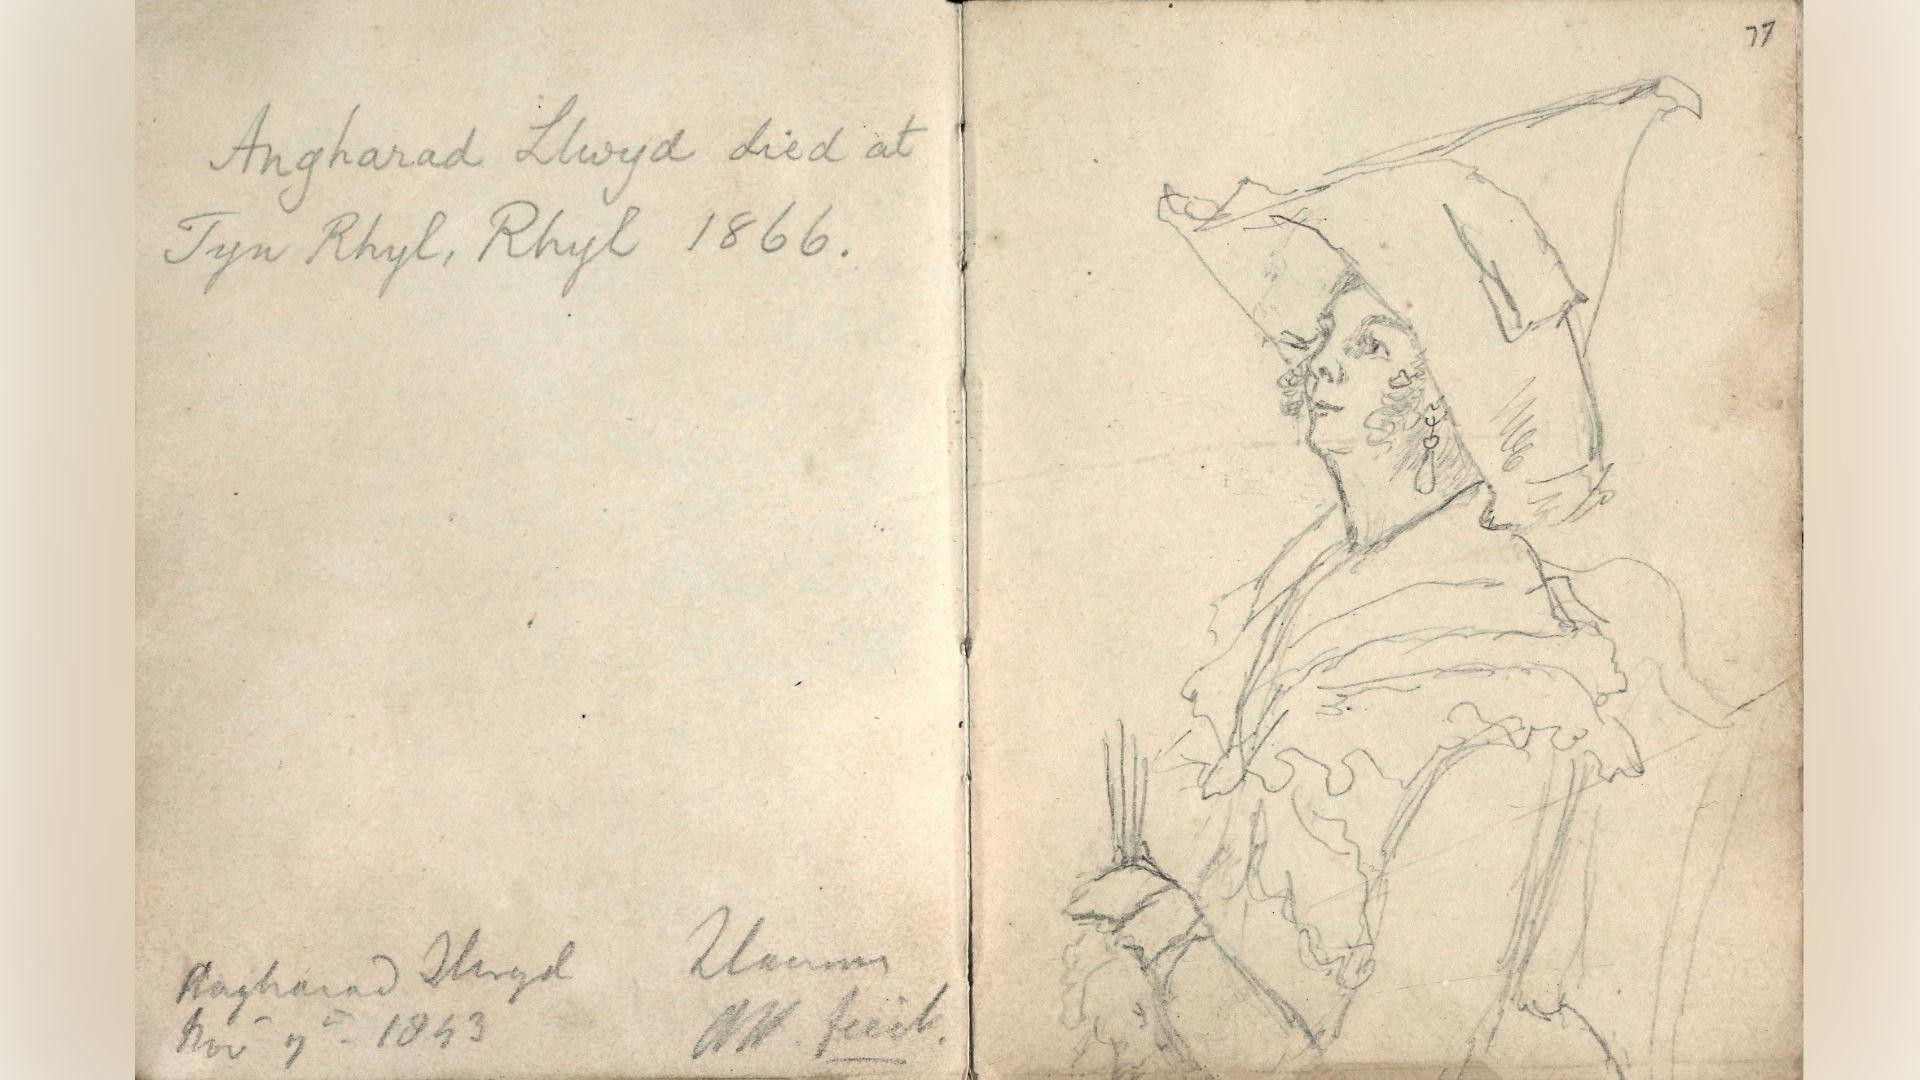 Angharad Llwyd died at
Tyn Rhyl, Rhyl 1866.
Angharad Llwyd
Nov 7th 1843
fecit.
77